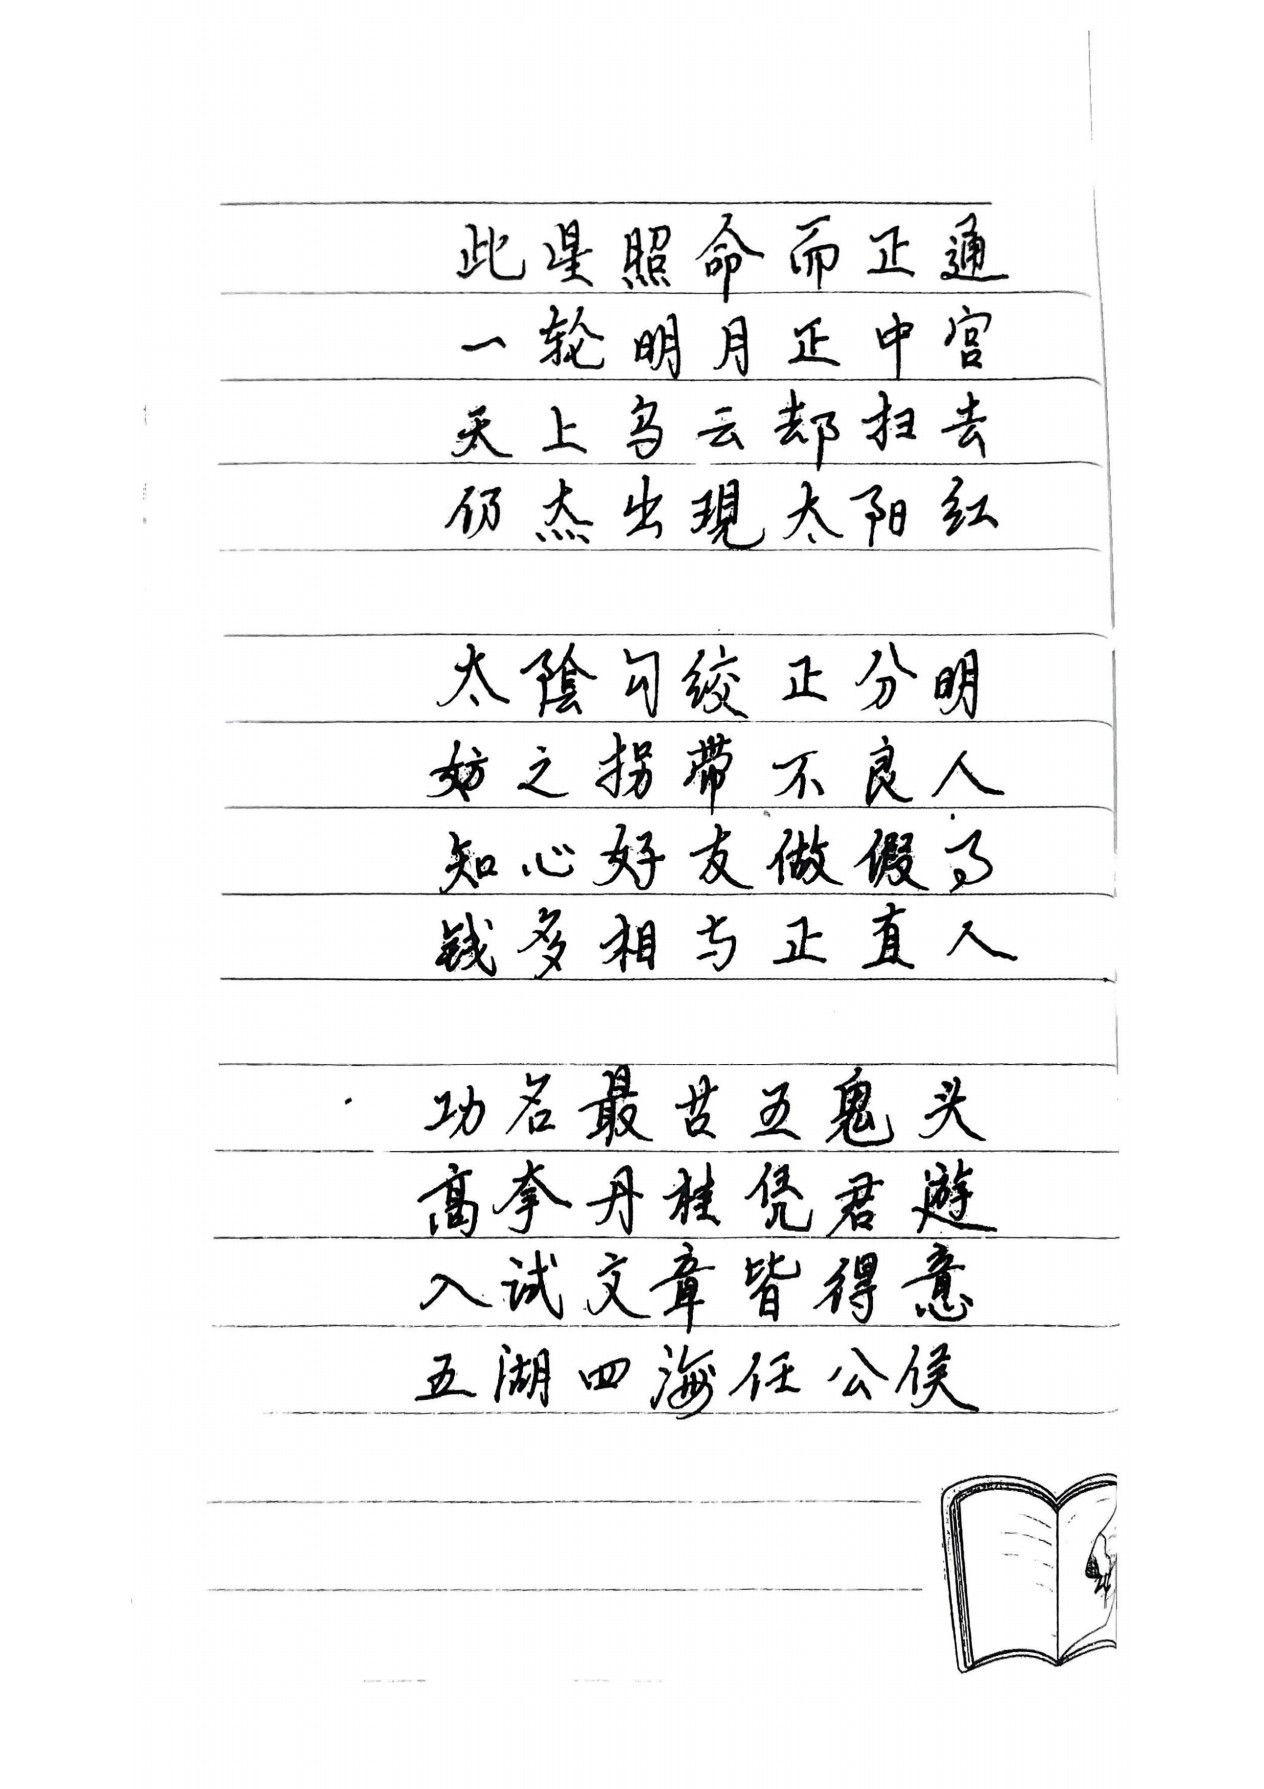 此星照命而正通
一轮明月正中宫
天上乌云却扫去
仍然出現太阳红
太陰勾绞正分明
妨之拐带不良人
知心好友做假
钱多相与正直人
功名最苦五鬼头
高拿丹桂凭君遊
入试文章皆得意
五湖四海任公侯